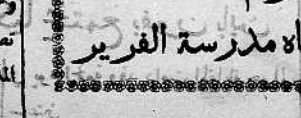 اه مدرسة الفرير